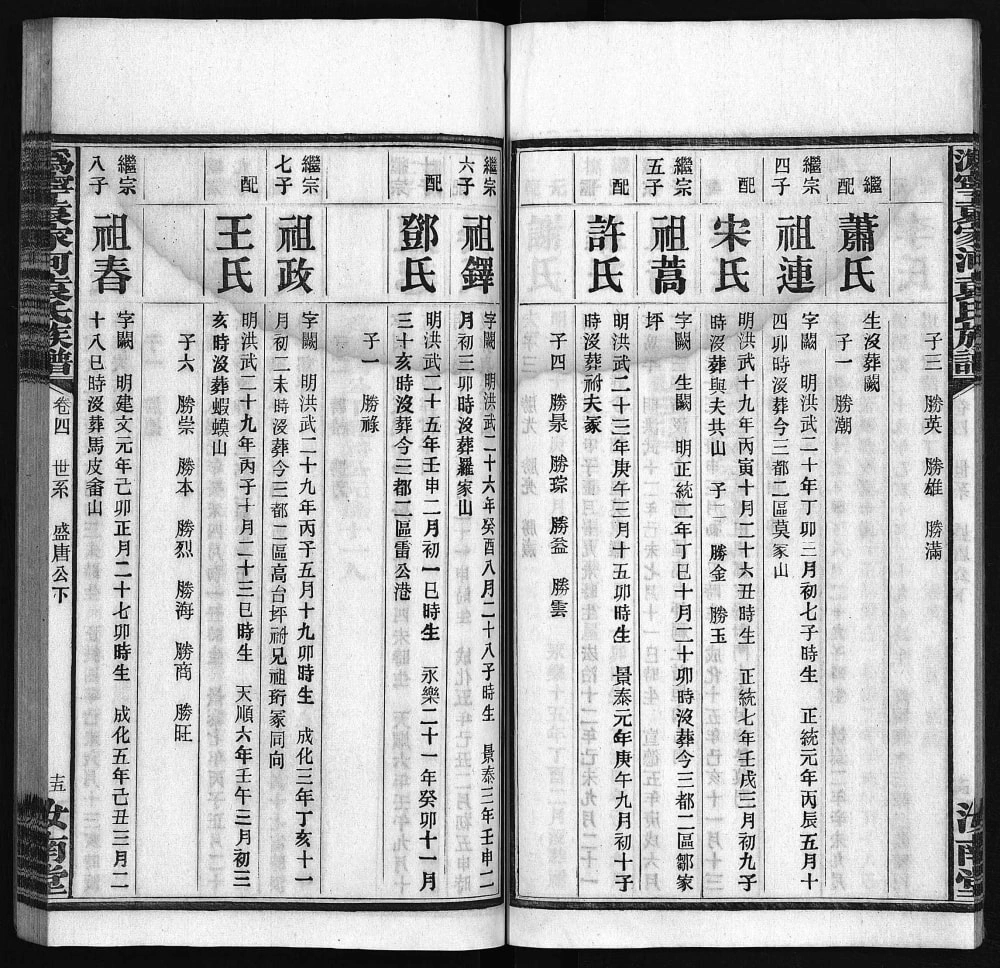 子三 勝英 勝雄 勝滿
繼配 蕭氏
生沒葬闕
子一 勝潮
繼宗四子 祖連
字闕 明洪武二十年丁卯三月初七子時生 正統元年丙辰五月十
四卯時沒葬今三都二區莫家山
配 宋氏
明洪武十九年丙寅十月二十六丑時生 正統七年壬戌三月初九子
時沒葬與夫共山 子二 勝金 勝玉
繼宗五子 祖蒿
字闕 生闕 明正統二年丁巳十月二十卯時沒葬今三都二區鄒家
坪
配 許氏
明洪武二十三年庚午三月十五卯時生 景泰元年庚午九月初十子
時沒葬祔夫冢
子四 勝景 勝琮 勝益 勝雲
繼宗六子 祖鐸
字闕 明洪武二十六年癸酉八月二十八子時生 景泰三年壬申二
月初三卯時沒葬羅家山
配 鄧氏
明洪武二十五年壬申二月初一巳時生 永樂二十一年癸卯十一月
三十亥時沒葬今三都一區雷公港
子一 勝祿
繼宗七子 祖政
字闕 明洪武二十九年丙子五月十九卯時生 成化三年丁亥十一
月初二未時沒葬今三都二區高台坪祔兄祖珩冢同向
配 王氏
明洪武二十九年丙子十月二十三巳時生 天順六年壬午三月初三
亥時沒葬蝦蟆山
子六 勝崇 勝本 勝烈 勝海 勝商 勝旺
繼宗八子 祖春
字闕 明建文元年己卯正月二十七卯時生 成化五年己丑三月二
十八巳時沒葬馬皮畲山
袁家河袁氏族譜 卷四 世系 盛唐公下 十五 汝南堂